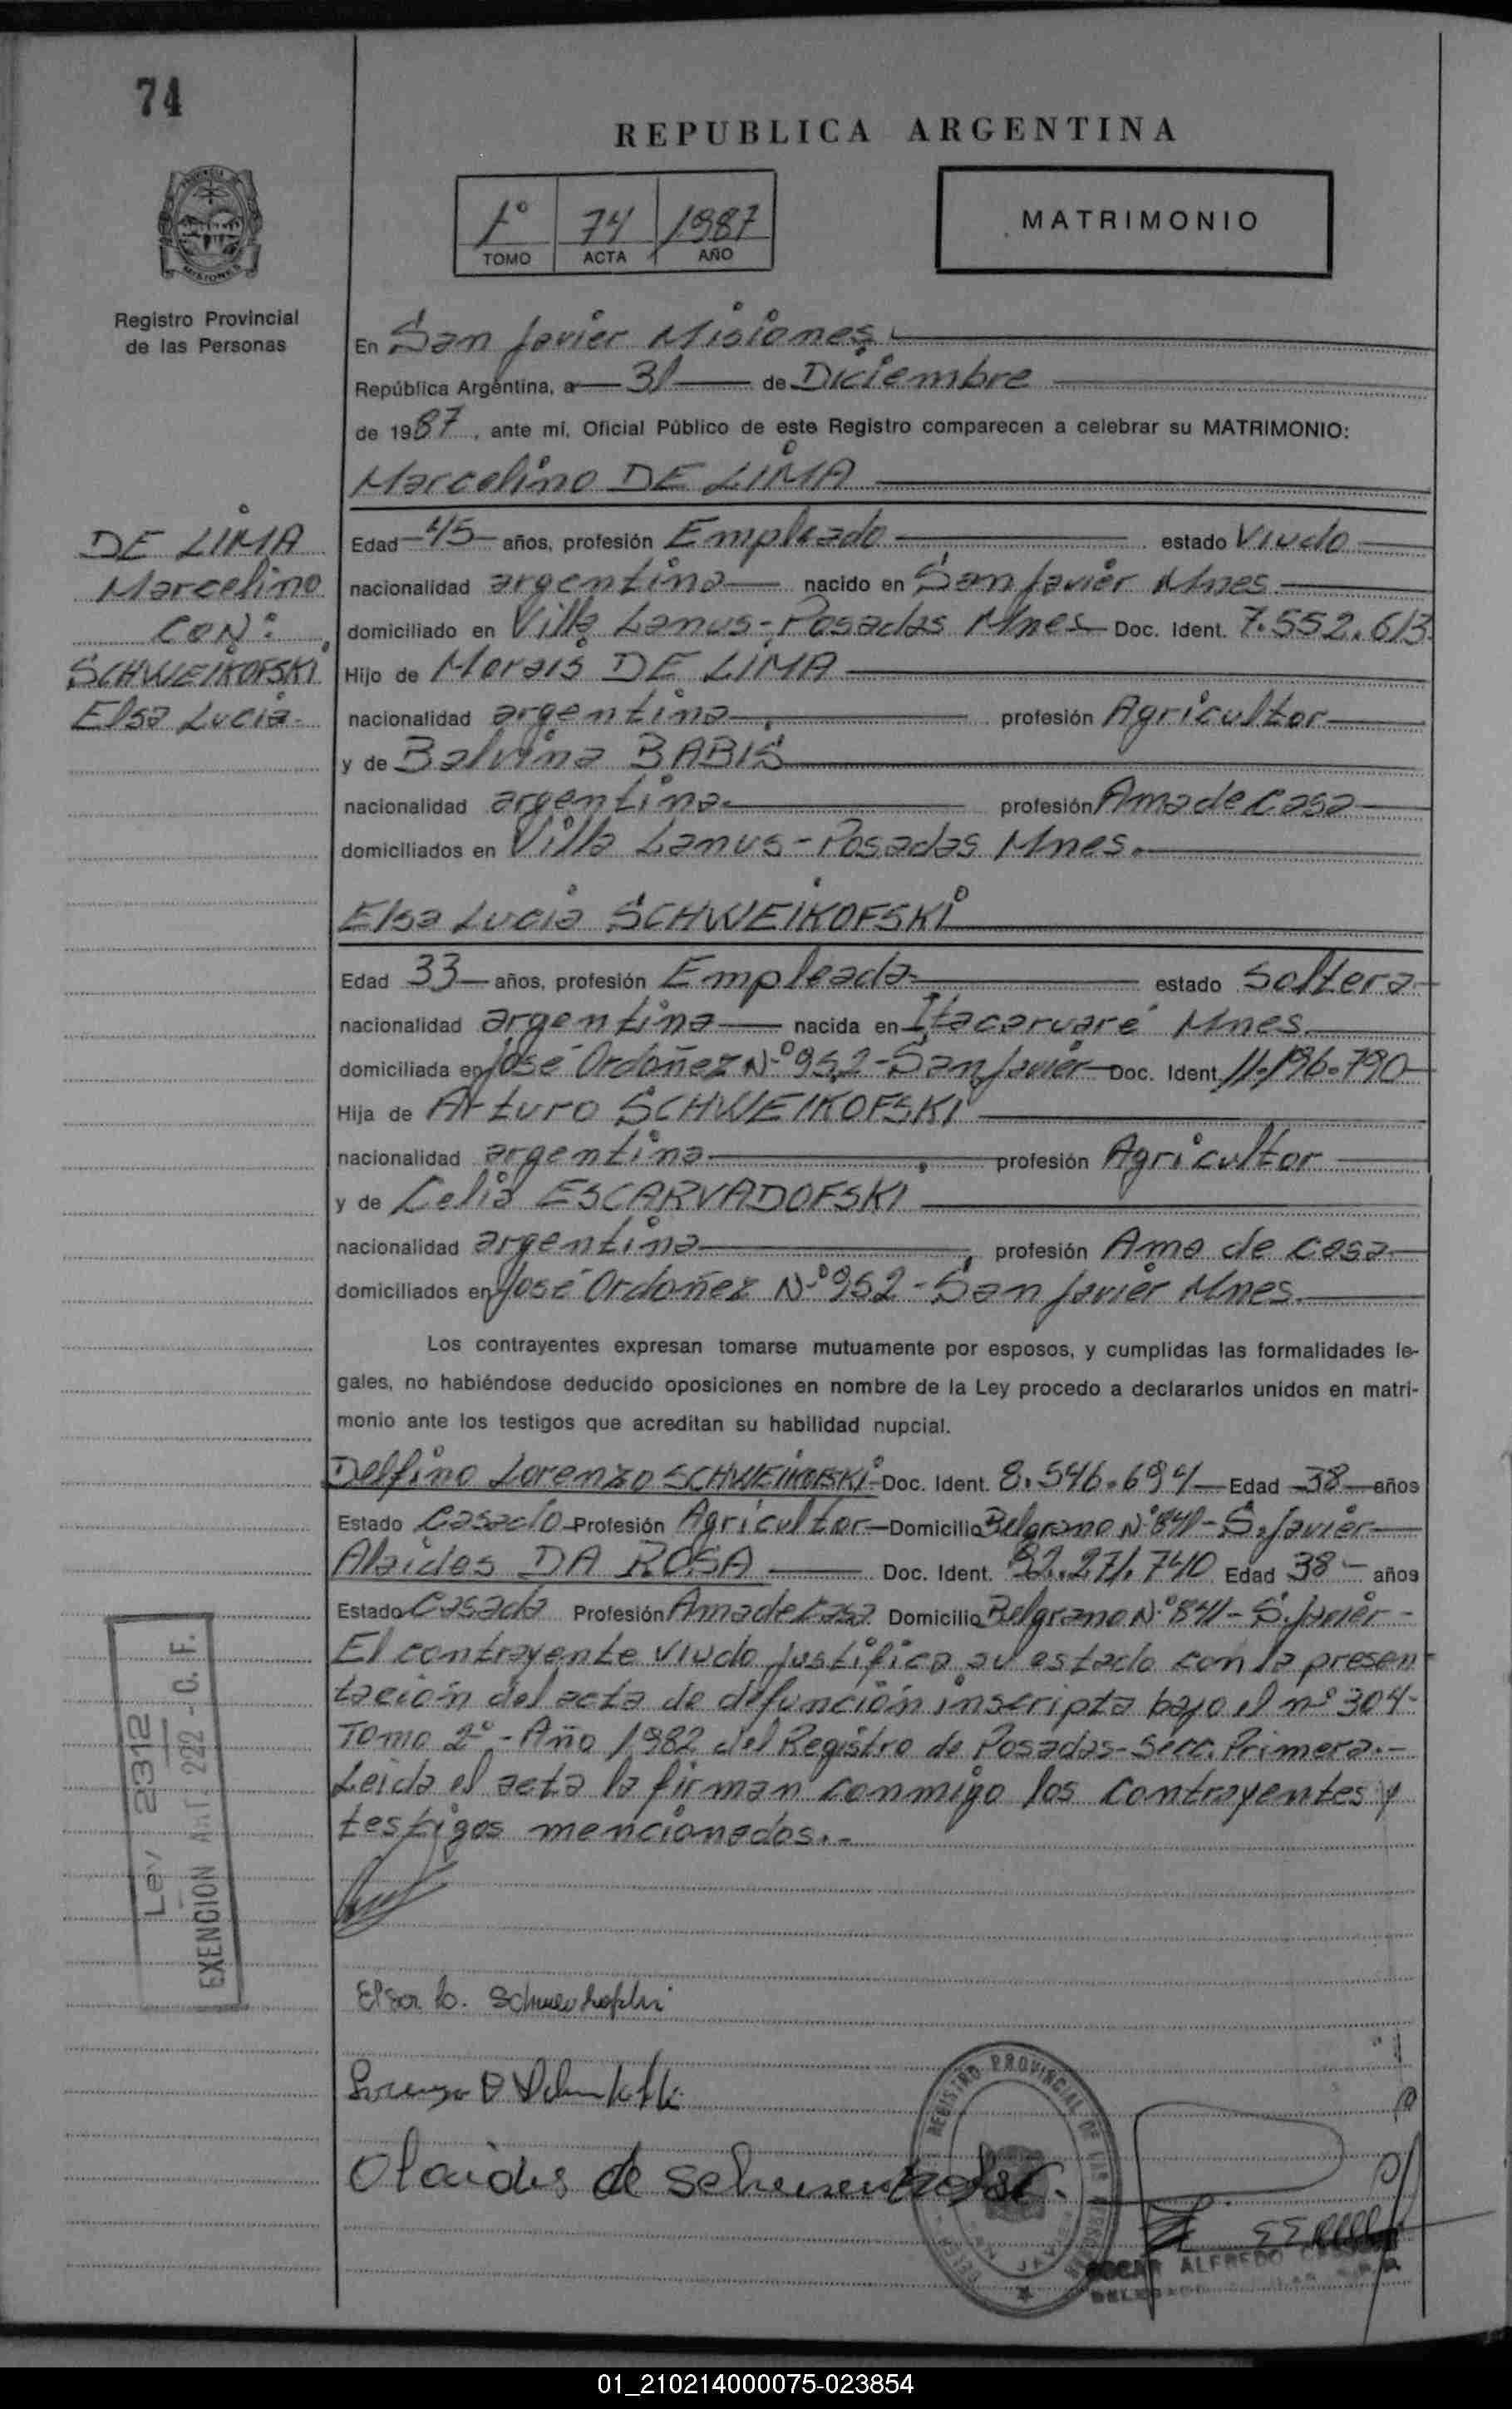 74
REPUBLICA ARGENTINA
1º 74 1987
TOMO ACTA AÑO
MATRIMONIO
PROVINCIA
MISIONES
Registro Provincial
de las Personas
En San Javier Misiones
República Argentina, a 31 de Diciembre
de 1987, ante mí, Oficial Público de este Registro comparecen a celebrar su MATRIMONIO:
Marcelino DE LIMA
DE LIMA
Marcelino
CON:
SCHWEIKOFSKI
Elsa Lucia
Edad 45 años, profesión Empleado estado Viudo
nacionalidad argentina nacido en San Javier Mnes.
domiciliado en Villa Lanus-Posadas Mnes Doc. Ident. 7.552.613
Hijo de Morais DE LIMA
nacionalidad argentina profesión Agricultor
y de Balvina BABIS
nacionalidad argentina profesión Ama de Casa
domiciliados en Villa Lanus-Posadas Mnes.
Elsa Lucia SCHWEIKOFSKI
Edad 33 años, profesión Empleada estado Soltera
nacionalidad argentina nacida en Itacaruaré Mnes.
domiciliada en José Ordoñez Nº 952-San Javier Doc. Ident. 11.196.790
Hija de Arturo SCHWEIKOFSKI
nacionalidad argentina, profesión Agricultor
y de Celia ESCARVADOFSKI
nacionalidad argentina, profesión Ama de casa
domiciliados en José Ordoñez Nº 952-San Javier Mnes.
Los contrayentes expresan tomarse mutuamente por esposos, y cumplidas las formalidades le-
gales, no habiéndose deducido oposiciones en nombre de la Ley procedo a declararlos unidos en matri-
monio ante los testigos que acreditan su habilidad nupcial.
Delfino Lorenzo SCHWEIKOFSKI Doc. Ident. 8.546.694 Edad 38 años
Estado Casado Profesión Agricultor Domicilio Belgrano Nº 841-S. Javier
Alaides DA ROSA Doc. Ident. 92.271.740 Edad 38 años
Estado Casada Profesión Ama de Casa Domicilio Belgrano Nº 841-S. Javier-
El contrayente viudo justifica su estado con la presen
tación del acta de defunción inscripta bajo el nº 304-
Tomo 2º-Año 1982 del Registro de Posadas-Secc. Primera.-
Leida el acta la firman conmigo los contrayentes y
testigos mencionados.-
Ley 2312
EXENCION ART. 222 - C. F.
Elsa L.
Lorenzo D
Olaides de
REGISTRO PROVINCIAL DE LAS PERSONAS
OSCAR ALFREDO
01_210214000075-023854